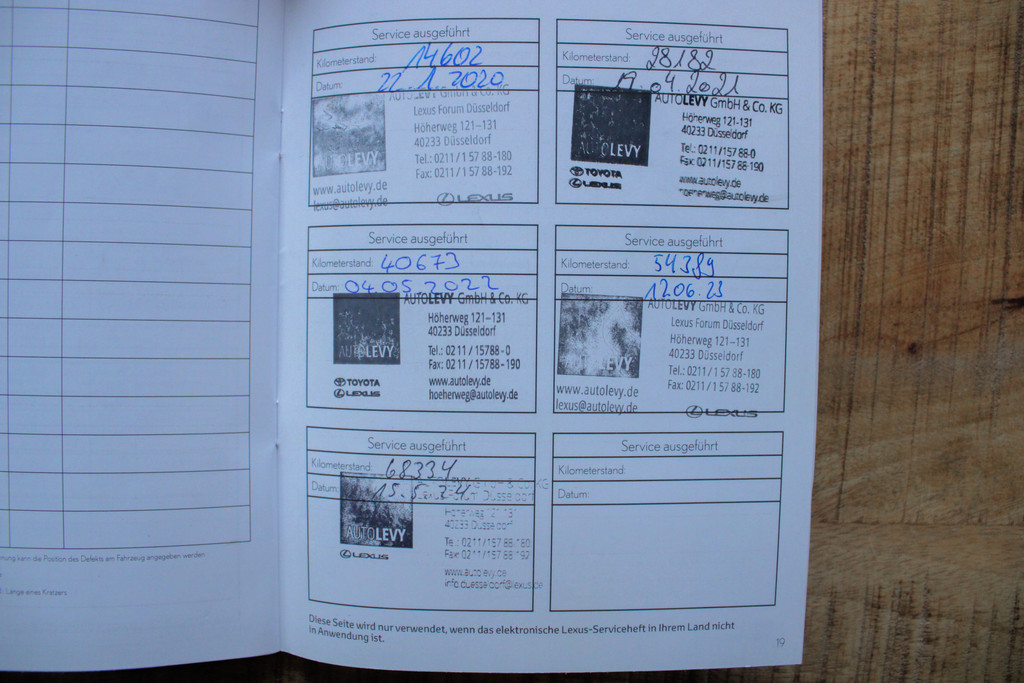 Service ausgeführt
Kilometerstand: 14602
Datum: 22.1.2020
AUTOLEVY GmbH & Co. KG
Lexus Forum Düsseldorf
Höherweg 121-131
40233 Düsseldorf
AUTOLEVY
Tel.: 0211/1 57 88-180
Fax: 0211/1 57 88-192
www.autolevy.de
lexus@autolevy.de
LEXUS
Service ausgeführt
Kilometerstand: 28182
Datum: 04.2021
AUTOLEVY GmbH & Co. KG
Höherweg 121-131
40233 Düsseldorf
AUTOLEVY
Tel.: 0211/157 88-0
Fax: 0211/157 88-190
TOYOTA
LEXUS
www.autolevy.de
hoeherweg@autolevy.de
Service ausgeführt
Kilometerstand: 40673
Datum: 04.05.2022
AUTOLEVY GmbH & Co. KG
Höherweg 121-131
40233 Düsseldorf
AUTOLEVY
Tel.: 0211/15788-0
Fax: 0211/15788-190
TOYOTA
LEXUS
www.autolevy.de
hoeherweg@autolevy.de
Service ausgeführt
Kilometerstand: 54389
Datum: 12.06.23
AUTOLEVY GmbH & Co. KG
Lexus Forum Düsseldorf
Höherweg 121-131
40233 Düsseldorf
AUTOLEVY
Tel.: 0211/1 57 88-180
Fax: 0211/1 57 88-192
www.autolevy.de
lexus@autolevy.de
LEXUS
Service ausgeführt
Kilometerstand: 68334
Datum: 15.5.24
GmbH & Co. KG
Forum Düsseldorf
Höherweg 121-131
40233 Düsseldorf
AUTOLEVY
LEXUS
Tel.: 0211/157 88 180
Fax: 0211/157 88 192
www.autolevy.de
info.duesseldorf@lexus.de
Service ausgeführt
Kilometerstand:
Datum:
Diese Seite wird nur verwendet, wenn das elektronische Lexus-Serviceheft in Ihrem Land nicht
in Anwendung ist.
19
kann die Position des Defekts am Fahrzeug angegeben werden
Länge eines Kratzers